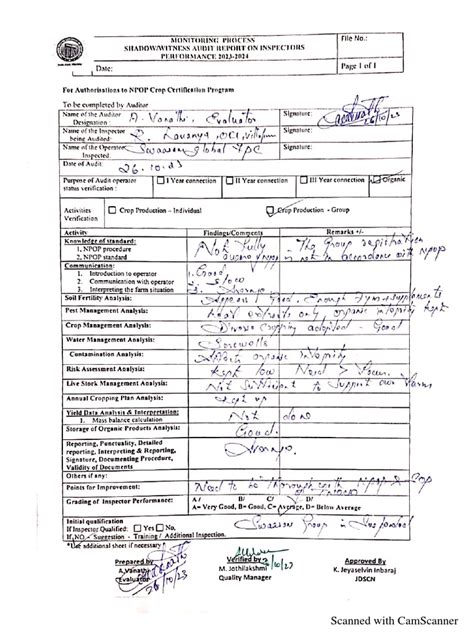 MONITORING PROCESS
SHADOW/WITNESS AUDIT REPORT ON INSPECTORS
PERFORMANCE 2023-2024
File No.:
Date:
Page 1 of 1
For Authorisations to NPOP Crop Certification Program
To be completed by Auditor
Name of the Auditor
Designation :
A. Vanathi, Evaluator
Signature:
26/10/23
Name of the Inspector
being Audited:
Lavanya, OCI,
Signature:
Name of the Operator
Inspected:
Swasam global FPC
Signature:
Date of Audit:
26.10.23
Purpose of Audit operator
status verification :
I Year connection
II Year connection
III Year connection
Organic
Activities
Verification
Crop Production – Individual
Crop Production - Group
Activity
Findings/Comments
Remarks +/-
Knowledge of standard:
1. NPOP procedure
2. NPOP standard
Not fully
The Group registration
is not in accordance with NPOP
Communication:
1. Introduction to operator
2. Communication with operator
3. Interpreting the farm situation
1. Good
2. slow
3. Average
Soil Fertility Analysis:
Appears Good. Enough
Pest Management Analysis:
extracts only, organic
kept
Crop Management Analysis:
Diverse cropping adopted - Good
Water Management Analysis:
Borewells
Contamination Analysis:
organic
Risk Assessment Analysis:
kept low Need Focus.
Live Stock Management Analysis:
Not sufficient to support own farms
Annual Cropping Plan Analysis:
kept up
Yield Data Analysis & Interpretation:
1. Mass balance calculation
Not done
Storage of Organic Products Analysis:
Good.
Reporting, Punctuality, Detailed
reporting, Interpreting & Reporting,
Signature, Documenting Procedure,
Validity of Documents
Average.
Others if any:
Points for Improvement:
Need to be thorough with NPOP &
Grading of Inspector Performance:
A/ B/ C/ D/
A= Very Good, B= Good, C= Average, D= Below Average
Initial qualification
If Inspector Qualified: Yes No,
If, NO – Suggestion - Training / Additional Inspection.
Swasam Group is Inspected
*Use additional sheet if necessary
Prepared by
A.Vanathi
Evaluator
26/10/23
Verified by
M. Jothilakshmi
Quality Manager
Approved By
K. Jeyaselvin Inbaraj
JDSCN
Scanned with CamScanner